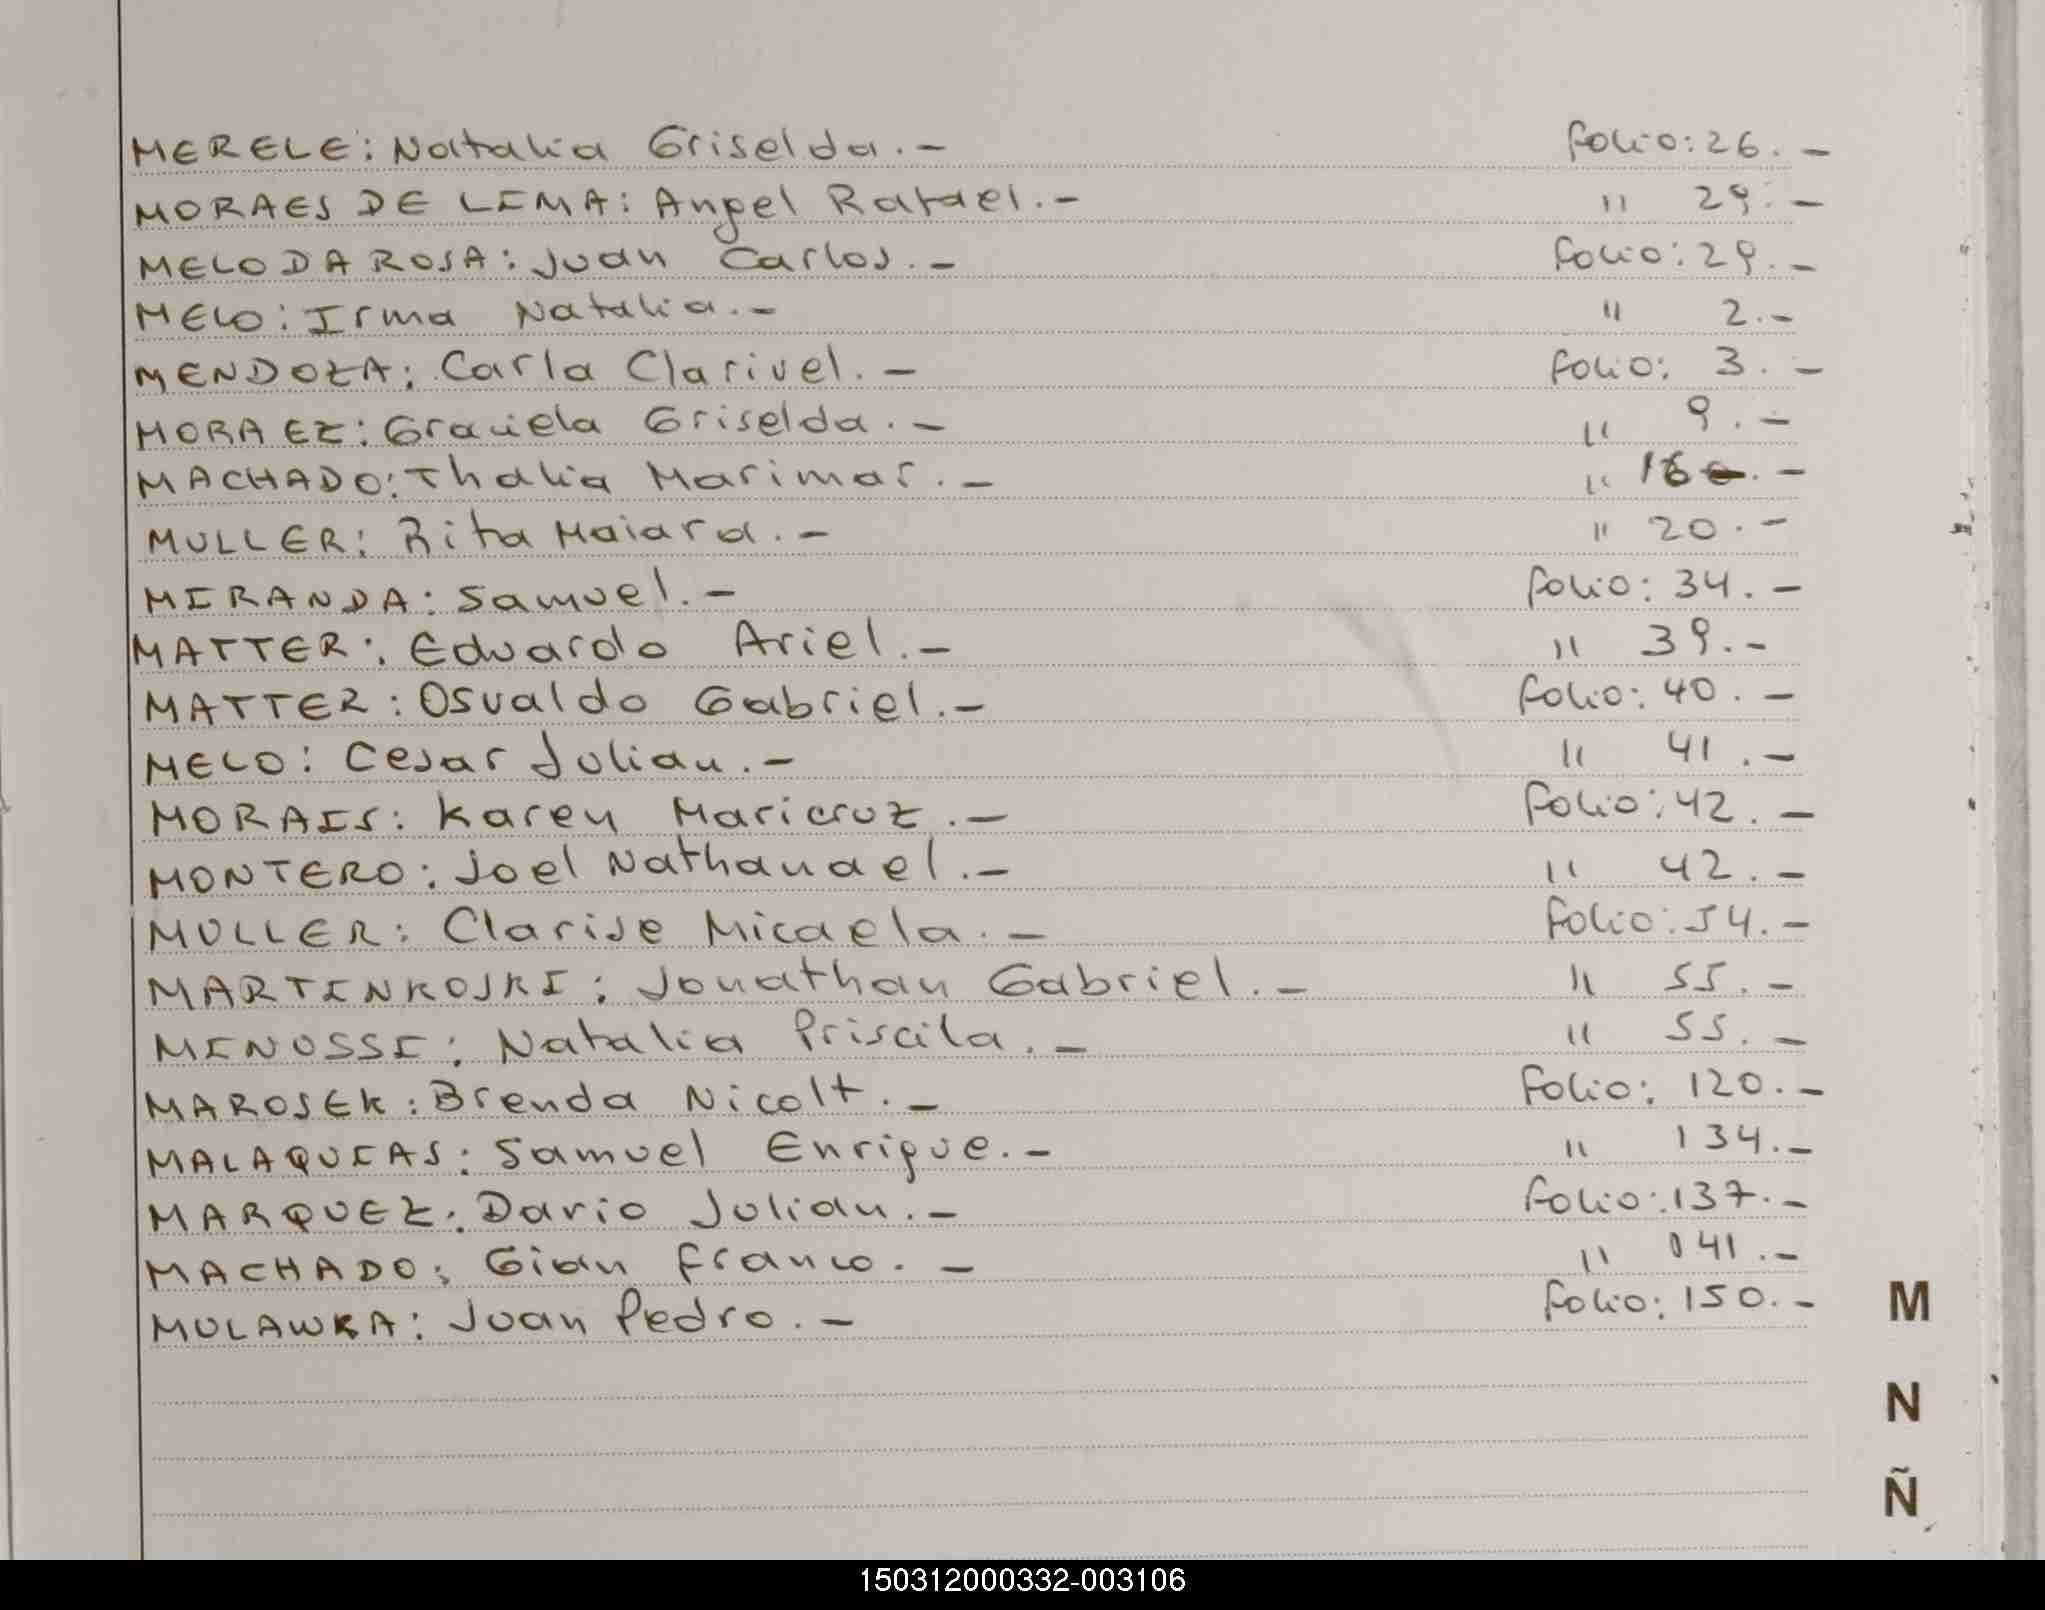 MERELE: Natalia Griselda.- folio: 26.-
MORAES DE LIMA: Angel Rafael.- " 29.-
MELO DA ROSA: Juan Carlos.- folio: 29.-
MELO: Irma Natalia.- " 2.-
MENDOZA: Carla Clarivel.- folio: 3.-
MORAEZ: Graciela Griselda.- " 9.-
MACHADO: Thalia Marimar.- " .-
MULLER: Rita Maiara.- " 20.-
MIRANDA: Samuel.- folio: 34.-
MATTER: Eduardo Ariel.- " 39.-
MATTER: Osvaldo Gabriel.- folio: 40.-
MELO: Cesar Julian.- " 41.-
MORAIS: Karen Maricruz.- folio: 42.-
MONTERO: Joel Nathanael.- " 42.-
MULLER: Clarise Micaela.- folio: 54.-
MARTINKOSKI: Jonathan Gabriel.- " 55.-
MINOSSI: Natalia Priscila.- " 55.-
MAROSEK: Brenda Nicolt.- folio: 120.-
MALAQUIAS: Samuel Enrique.- " 134.-
MARQUEZ: Dario Julian.- folio: 137.-
MACHADO: Gian Franco.- " 041.-
MULAWKA: Juan Pedro.- folio: 150.-
M
N
Ñ
150312000332-003106